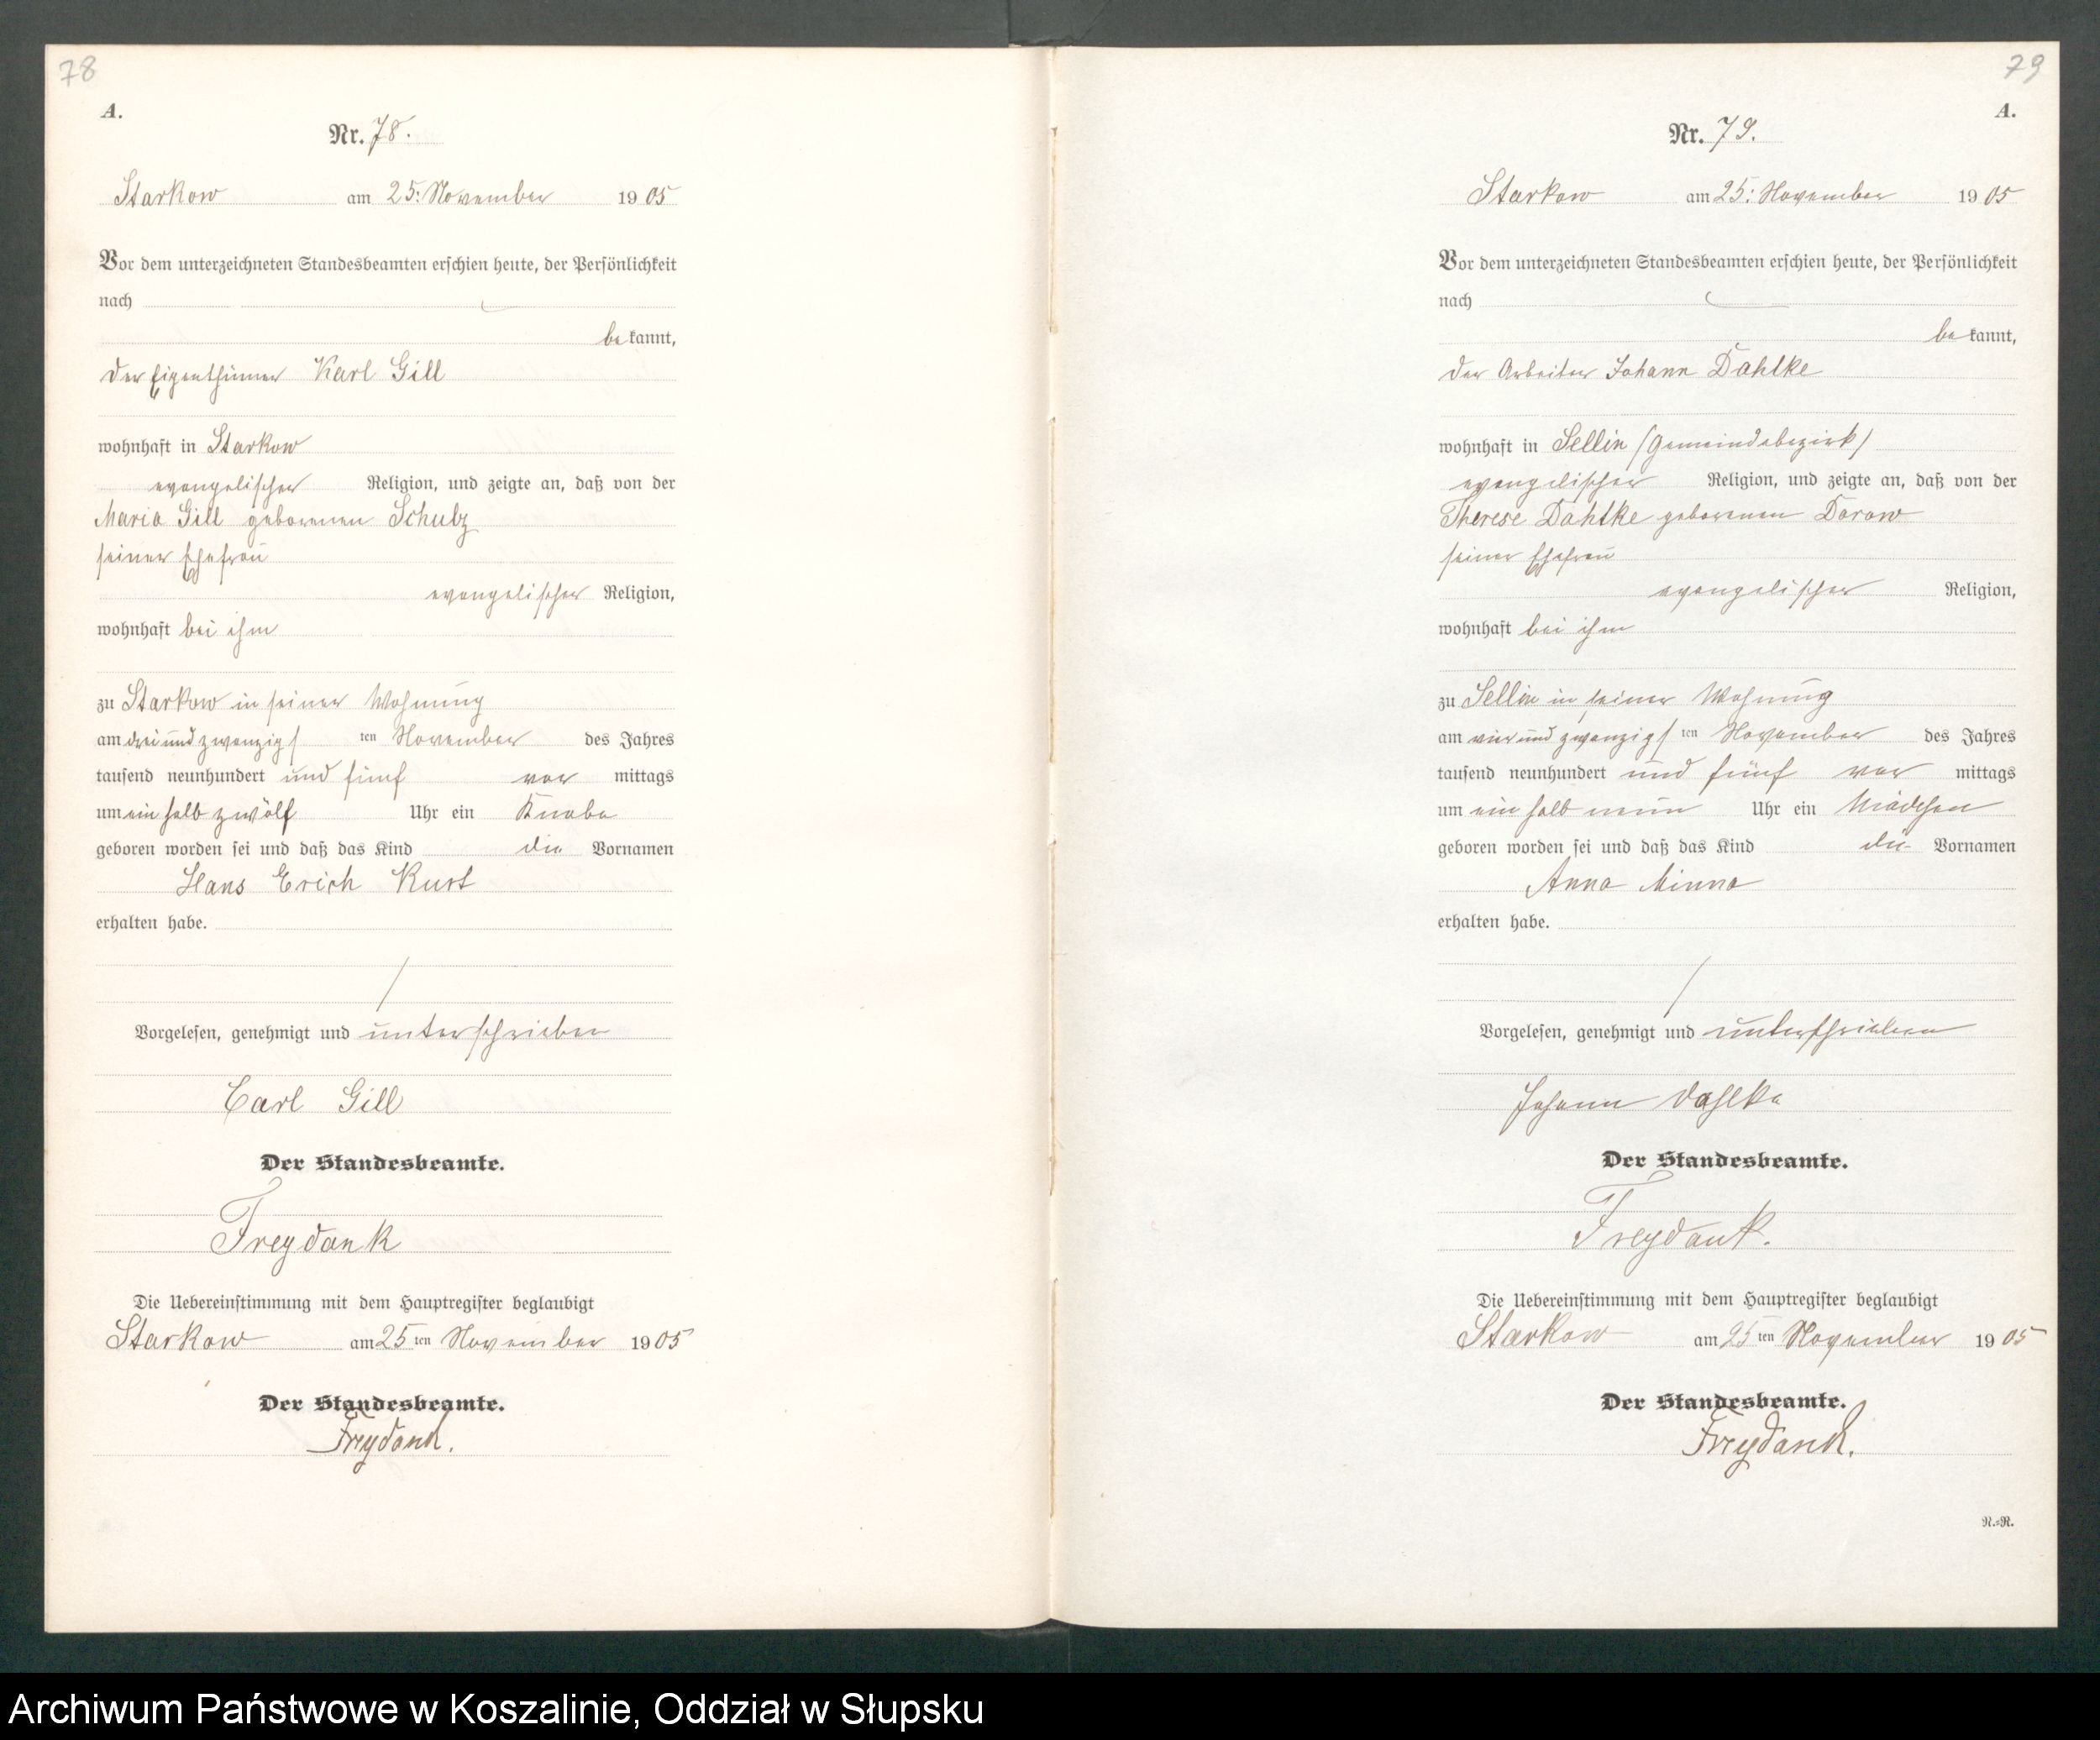 78
A.
Nr. 78.
Starkow am 25. November 1905
Vor dem unterzeichneten Standesbeamten erschien heute, der Persönlichkeit
nach
bekannt,
der Eigenthümer Karl Gill
wohnhaft in Starkow
evangelischer Religion, und zeigte an, daß von der
Maria Gill geborenen Schulz
seiner Ehefrau
evangelischer Religion,
wohnhaft bei ihm
zu Starkow in seiner Wohnung
am drei und zwanzigsten November des Jahres
tausend neunhundert und fünf vor mittags
um ein halb zwölf Uhr ein Knabe
geboren worden sei und daß das Kind die Vornamen
Hans Erich Kurt
erhalten habe.
Vorgelesen, genehmigt und unterschrieben
Carl Gill
Der Standesbeamte.
Freydank
Die Uebereinstimmung mit dem Hauptregister beglaubigt
Starkow am 25ten November 1905
Der Standesbeamte.
Freydank.
79
A.
Nr. 79.
Starkow am 25. November 1905
Vor dem unterzeichneten Standesbeamten erschien heute, der Persönlichkeit
nach
bekannt,
der Arbeiter Johann Dahlke
wohnhaft in Sellin (Gemeindebezirk)
evangelischer Religion, und zeigte an, daß von der
Therese Dahlke geborenen Dorow
seiner Ehefrau
evangelischer Religion,
wohnhaft bei ihm
zu Sellin in seiner Wohnung
am vier und zwanzigsten November des Jahres
tausend neunhundert und fünf vor mittags
um ein halb neun Uhr ein Mädchen
geboren worden sei und daß das Kind die Vornamen
Anna Minna
erhalten habe.
Vorgelesen, genehmigt und unterschrieben
Johann Dahlke
Der Standesbeamte.
Freydank.
Die Uebereinstimmung mit dem Hauptregister beglaubigt
Starkow am 25ten November 1905
Der Standesbeamte.
Freydank.
N.=R.
Archiwum Państwowe w Koszalinie, Oddział w Słupsku